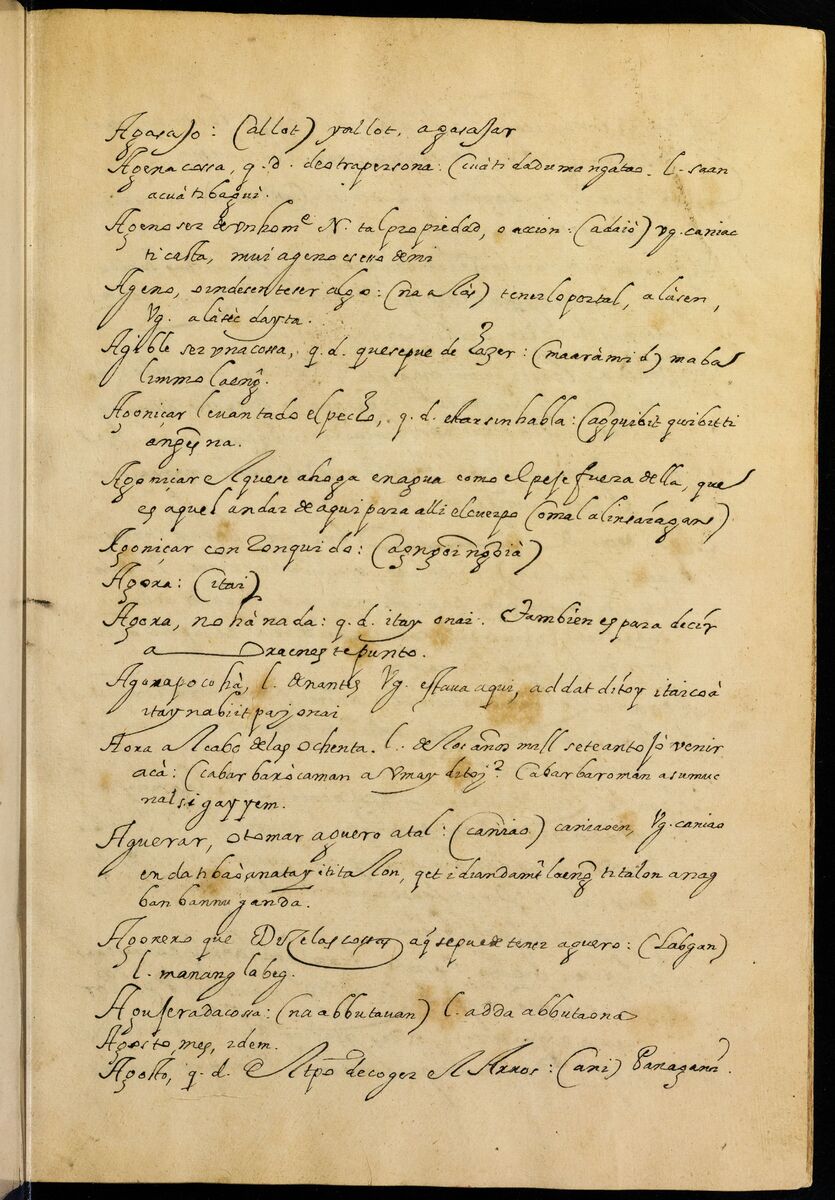 Agasajo: (allot) yallot, agasajar
Agena cossa, q. d. de otra persona: (cuàti dadumangatao. l. saan
acuàti bagui.
Ageno ser de vn home N. tal propiedad, o accion: (adaiò) vg. caniac
ti casta, mui ageno es esso de mi
Ageno, o indesente ser algo: (na alàs) tenerlo por tal, alàsen,
Vg. alàsèc dayta.
Agible ser vna cossa, q. d. que se puede hazer: (maaràmid) maba
limmo laeng.
Agoniçar levantado el pecho, q. d. estar sin habla: (agquibit quibit ti
angesna.
Agoniçar el que se ahoga en agua como el peje fuera della, que
es aquel andar de aqui para alli el cuerpo
Agoniçar con ronquido:
Agora: (itai)
Agora, no hà nada: q. d. itay onai. Tambien es para decir
a oraenes te punto.
Agora poco hà, l. denantes Vg. estava aqui, addat ditoy itaicoà
itay nabiit pay onai
Aora al cabo de las ochenta. l. de los años mill
venir
acà: (cabarbarò caman a vmay ditoy? Cabarbaroman a sumuc
nal si gayyem.
Aguerar, o tomar aguero a tal: (caniao) caniaoen, Vg. caniao
en da ti baò a natay iti talon, qet idiandamt laeng ti talon a nag
banbannuganda.
Agorero que Dize las cossas aq se puede tener aguero: (Labgan)
l. manang labeg.
Agujerada cossa: (na abbutauan) l. adda abbutaona
Agosto, mes, idem.
Agosto, q. d. El tpo de coger el Arros: (ani) Panagani.